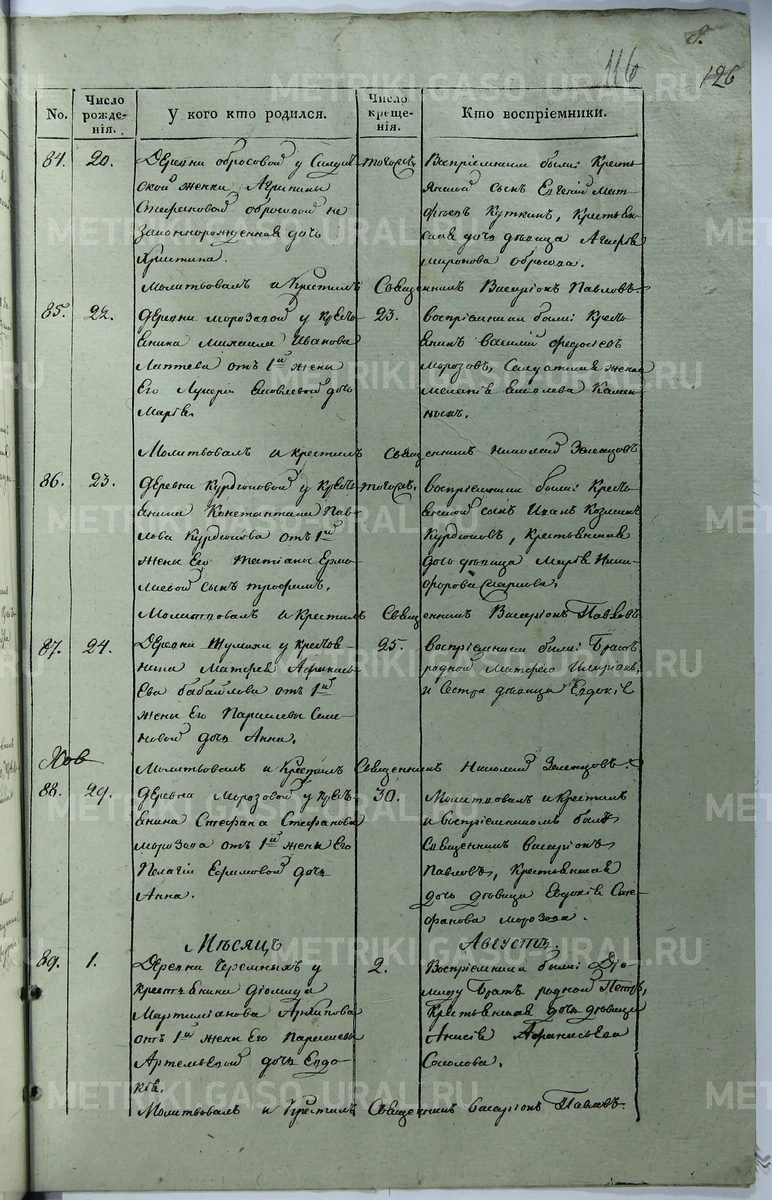 8.
116
126
No.
Число рожде-нія.
У кого кто родился.
Число креще-нія.
Кто воспріемники.
84.
20.
Деревни обросовой у Салдат
ской женки Агрипины
Стефановой обросовой не
Законнорожденная дочь
Христина.
тогоже.
Воспріемники были: Кресть
янской сынъ Евгений Мат
фьевъ Куткинъ, Крестьян
ская дочь дѣвица
миронова обросова.
Молитвовалъ и Крестилъ Священникъ Висаріонъ Павловъ.
85.
22.
деревни морозовой у крестъ
янина михаила Иванова
Лаптева отъ 1й жены
Его Лукерiи Яковлевой дочь
Марiя.
23.
воспріемники были: Кресть
янинъ василий федосѣев
морозовъ, Салдатская женка
Каmен
ныхъ.
Молитвовалъ и крестилъ священникъ Николай Зеленцовъ
86.
23.
деревни Курдюковой у Кресть
янина Константина Пав
лова Курдюкова отъ 1й
жены Его Татiаны Ермо
лаевой сынъ трофимъ.
тогоже.
воспріемники были: Кресть
янской сынъ Иванъ Козминъ
Курдюковъ, Крестьянская
дочь дѣвица Марiя Ники
форова
Молитвовалъ и Крестилъ Священникъ Висарiонъ Павловъ
87.
24.
Деревни у крестья
нина Матфея Афанась
ева бабайлова отъ 1й
жены Его Парасковьи Семе
новой дочь Анна.
25.
воспріемники были: Братъ
родной Матфея Иларiонъ,
и Сестра дѣвица Евдокiя
Молитвовалъ и Крестилъ Священникъ Николай Зеленцовъ.
88.
29.
деревни Морозовой у кресть
янина Стефана Стефанова
морозова отъ 1й жены Его
Пелагiи Ефимовой дочь
Анна.
30.
Молитвовалъ и Крестилъ
и воспріемникомъ былъ
Священникъ висарiонъ
Павловъ, Крестьянская
дочь дѣвица Евдокiя Сте
фанова морозова.
Мѣсяцъ Августъ.
89.
1.
Деревни Черемныхъ у
крестьянина дiомида
Мартимiанова Архипова
отъ 1й жены Его Парасковьи
Артемьевой дочь Евдо
кiя.
2.
Воспріемники были: Дiо
миду Братъ родной Петръ,
Крестьянская дочь дѣвица
Анисiя Афанасьева
Соколова.
Молитвовалъ и Крестилъ Священникъ висарiонъ Павловъ.
METRIKI.GASO-URAL.RU